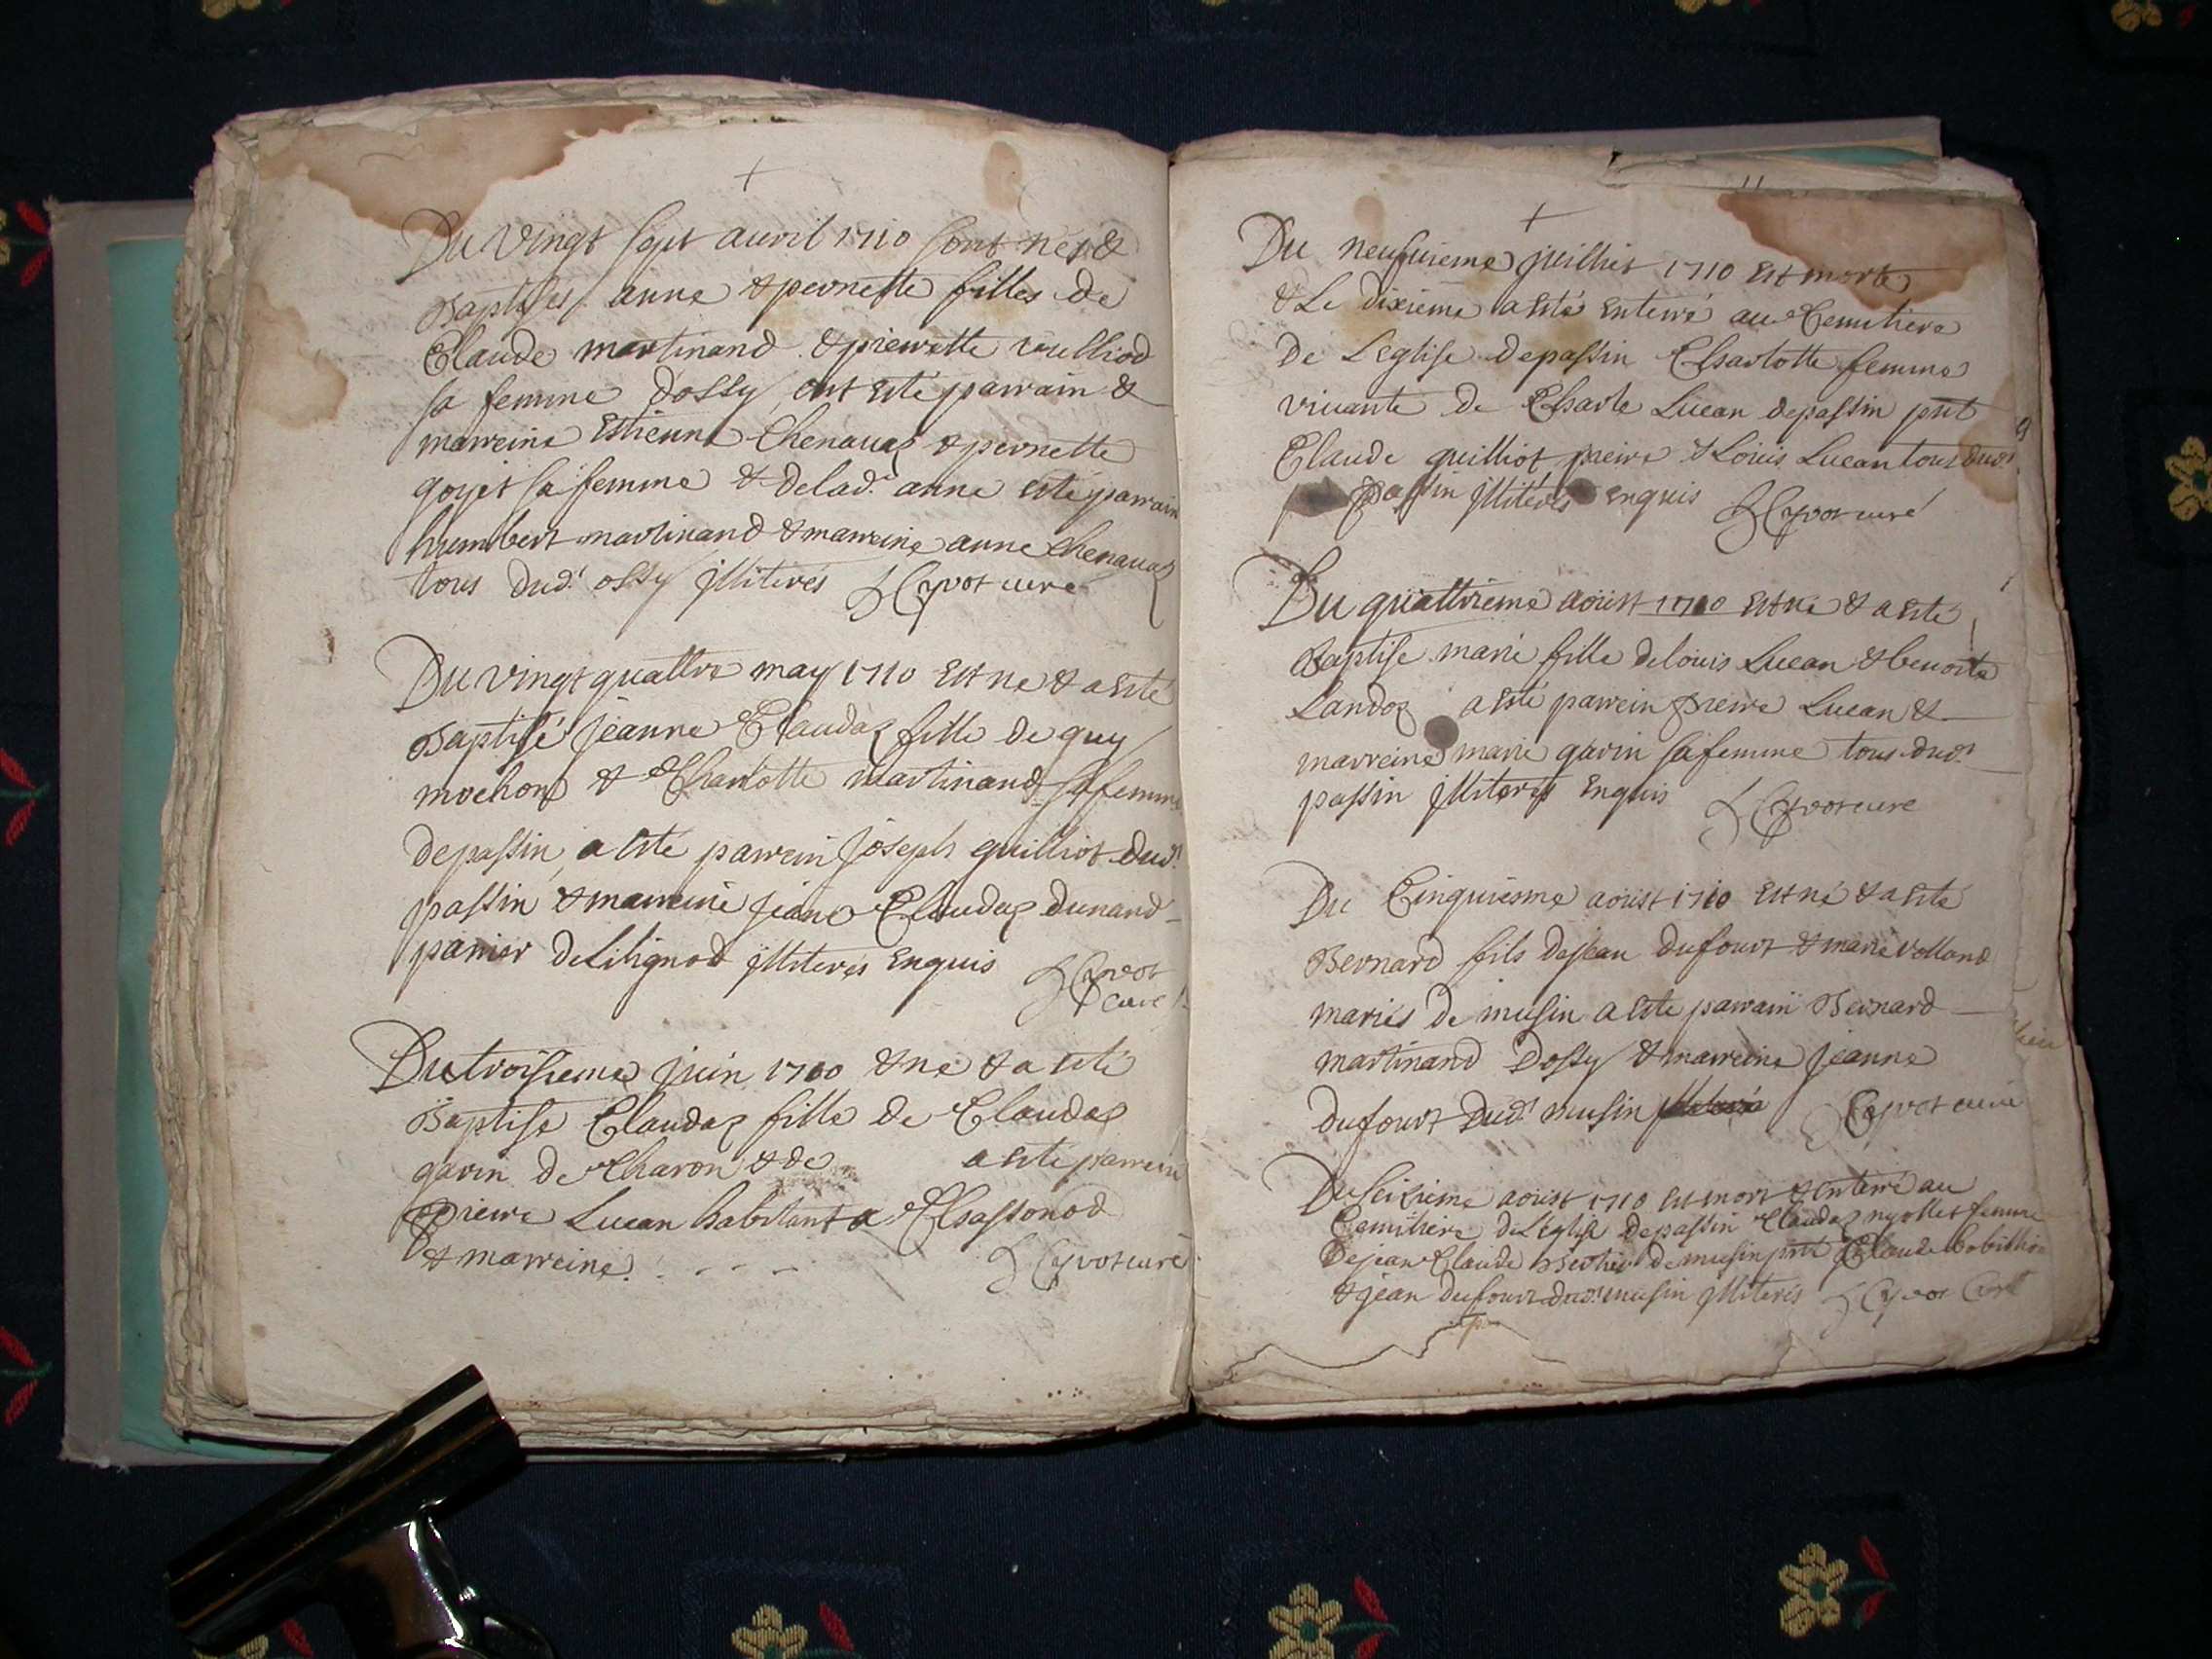 +
Du vingt sept auvril 1710 sont nés &
Baptises anne & pernette filles de
Claude martinand & pierrette
sa femme dossy ont esté parrain &
marreine Estienne Chenauaz & pernette
goyet sa femme & de lad.e anne esté parrain
humbert martinand & marreine anne Chenauaz
tous dud.t ossy illiterés Cyvot curé
Du vingt quattre may 1710 est né & a esté
Baptisé jeanne Claudaz fille de guy
mochon & de Charlotte martinand sa femme
de passin a esté parrein joseph guilliot dud.t
passin & marreine jeane Claudaz dunand
panier de Lilignod illiterés enquis Cyvot
curé
Du troisieme juin 1710 & né & a esté
Baptise Claudaz fille de Claudaz
gavin de Charon & de a esté parrein
pierre Lucan habitant a Chassonod
& marreine - - - Cyvot curé
+
Du neufuieme juillet 1710 est morte
& Le dixieme a esté enterré au Cemitiere
de Leglise de passin Charlotte femme
vivante de Charle Lucan de passin pnt
Claude guilliot pierre & Louis Lucan tous dud.t
passin illiterés enquis Cyvot curé
Du quattrieme aoust 1710 est né & a esté
Baptise marie fille de louis Lucan & benoite
Landoz a esté parrein pierre Lucan &
marreine marie gavin sa femme tous dud.t
passin illiterés enquis Cyvot curé
Du Cinquiesme aoust 1710 est né & a esté
Bernard fils de jean dufourt & marie Volland
mariés de musin a esté parrain Bernard
martinand dossy & marreine jeanne
dufourt dud.t musin Cyvot curé
Du seizieme aoust 1710 est mort & enterré au
Cemitiere de Leglise de passin Claudaz myollet femme
de jean Claude Berthet de musin pnt Claude bobillion
& jean dufourt dud.t musin illiterés Cyvot Curé